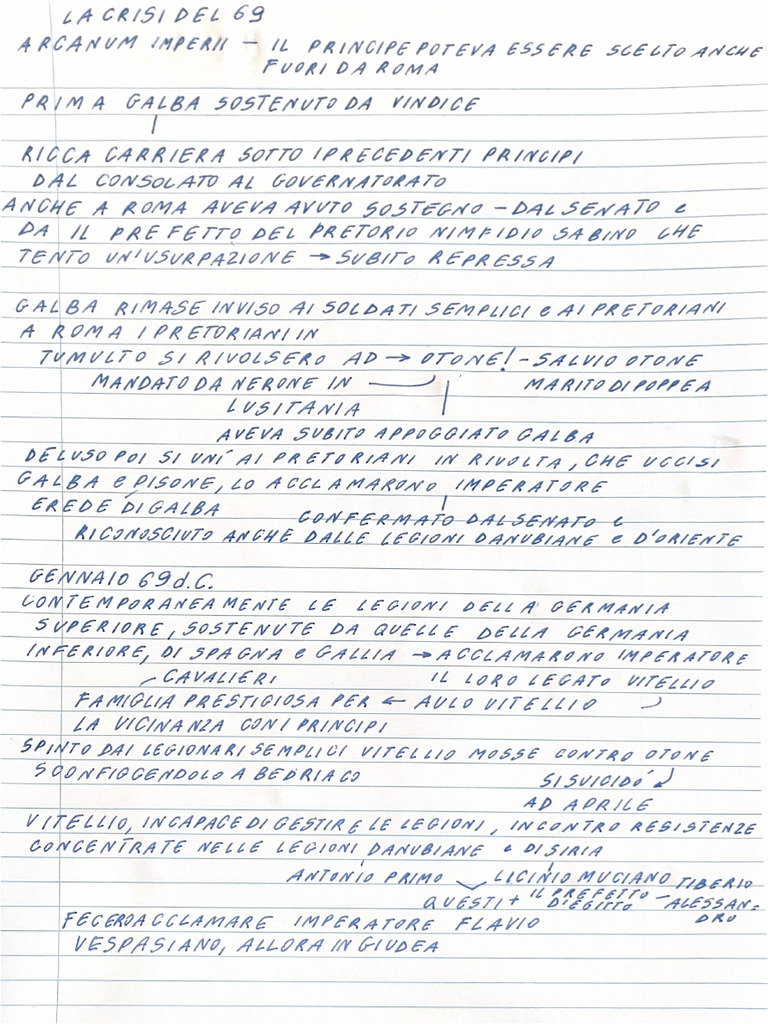 LA CRISI DEL 69
ARCANUM IMPERII - IL PRINCIPE POTEVA ESSERE SCELTO ANCHE
FUORI DA ROMA
PRIMA GALBA SOSTENUTO DA VINDICE
RICCA CARRIERA SOTTO I PRECEDENTI PRINCIPI
DAL CONSOLATO AL GOVERNATORATO
ANCHE A ROMA AVEVA AVUTO SOSTEGNO - DAL SENATO e
DA IL PREFETTO DEL PRETORIO NIMFIDIO SABINO CHE
TENTO UN'USURPAZIONE → SUBITO REPRESSA
GALBA RIMASE INVISO AI SOLDATI SEMPLICI e AI PRETORIANI
A ROMA I PRETORIANI IN
TUMULTO SI RIVOLSERO AD → OTONE! - SALVIO OTONE
MANDATO DA NERONE IN MARITO DI POPPEA
LUSITANIA
AVEVA SUBITO APPOGGIATO GALBA
DELUSO POI SI UNÍ AI PRETORIANI IN RIVOLTA, CHE UCCISI
GALBA e PISONE, LO ACCLAMARONO IMPERATORE
EREDE DI GALBA CONFERMATO DAL SENATO e
RICONOSCIUTO ANCHE DALLE LEGIONI DANUBIANE e D'ORIENTE
GENNAIO 69 d.C.
CONTEMPORANEAMENTE LE LEGIONI DELLA GERMANIA
SUPERIORE, SOSTENUTE DA QUELLE DELLA GERMANIA
INFERIORE, DI SPAGNA e GALLIA → ACCLAMARONO IMPERATORE
CAVALIERI IL LORO LEGATO VITELLIO
FAMIGLIA PRESTIGIOSA PER ← AULO VITELLIO
LA VICINANZA CON I PRINCIPI
SPINTO DAI LEGIONARI SEMPLICI VITELLIO MOSSE CONTRO OTONE
SCONFIGGENDOLO A BEDRIACO SI SUICIDÓ
AD APRILE
VITELLIO, INCAPACE DI GESTIRE LE LEGIONI, INCONTRO RESISTENZE
CONCENTRATE NELLE LEGIONI DANUBIANE e DI SIRIA
ANTONIO PRIMO LICINIO MUCIANO TIBERIO
QUESTI + IL PREFETTO D'EGITTO - ALESSAN=
DRO
FECERO ACCLAMARE IMPERATORE FLAVIO
VESPASIANO, ALLORA IN GIUDEA